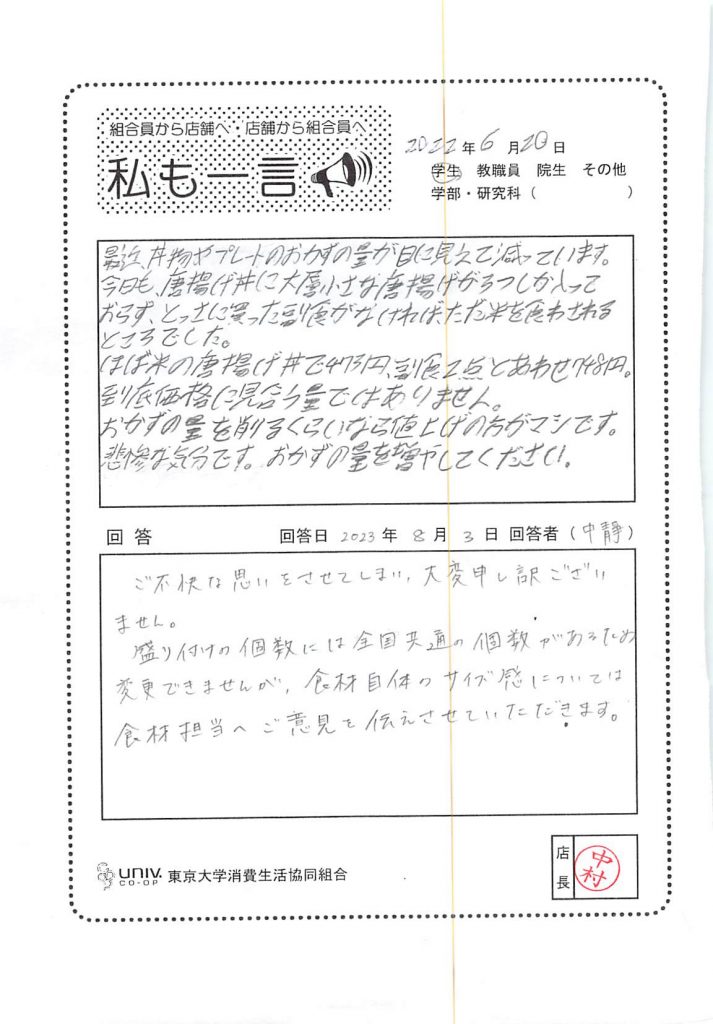 組合員から店舗へ・店舗から組合員へ
私も一言
2022年6月20日
学生 教職員 院生 その他
学部・研究科（ ）
最近、丼物やプレートのおかずの量が目に見えて減っています。
今日も、唐揚げ丼に大層小さな唐揚げが3つしか入って
おらず、とっさに買った副食がなければ、ただ米を食わされる
ところでした。
ほぼ米の唐揚げ丼で473円、副食2点とあわせ748円。
到底価格に見合う量ではありません。
おかずの量を削るくらいなら値上げの方がマシです。
悲惨な気分です。おかずの量を増やしてください。
回答 回答日 2023年8月3日 回答者（中静）
ご不快な思いをさせてしまい、大変申し訳ござい
ません。
盛り付けの個数には全国共通の個数があるため
変更できませんが、食材自体のサイズ感については
食材担当へご意見を伝えさせていただきます。
UNIV. CO-OP 東京大学消費生活協同組合
店長 中村